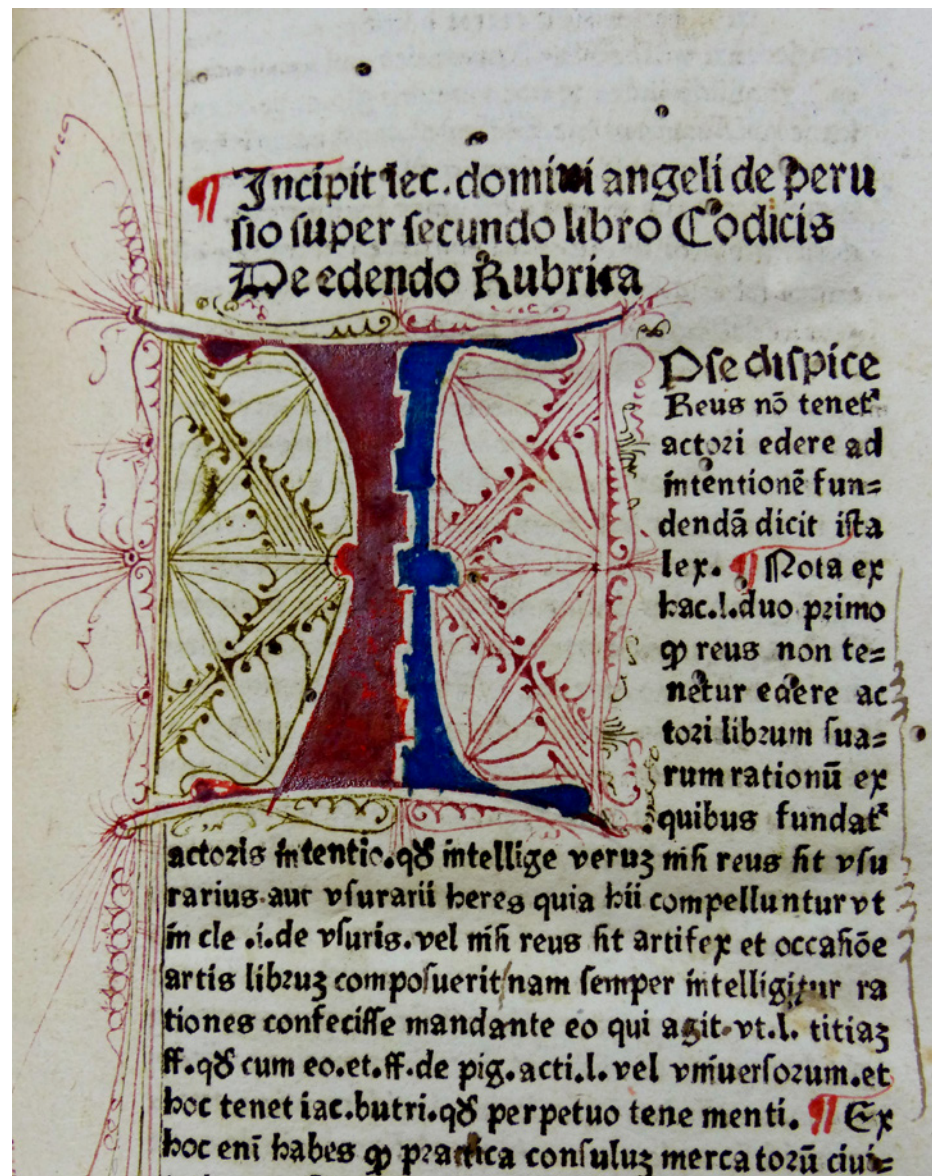 ¶ Incipit lec. domini angeli de peru
sio super secundo libro Codicis
De edendo Rubrica
IPse dispice
Reus nō tenetᷣ
actori edere ad
intentionē fun=
dendā dicit ista
lex. ¶ Nota ex
hac.l.duo primo
ꝙ reus non te=
netur edere ac
tori librum sua=
rum rationū ex
quibus fundatᷣ
actoris intentio.qđ intellige veruꝫ nisi reus sit vsu
rarius.aut vsurarii heres quia hii compelluntur vt
in cle .i.de vsuris.vel nisi reus sit artifex et occasiōe
artis libruꝫ composuerit/nam semper intelligitur ra
tiones confecisse mandante eo qui agit.vt.l. titiaꝫ
ff.qđ cum eo.et.ff.de pig.acti.l. vel vniuersorum.et
hoc tenet iac.butri.qđ perpetuo tene menti. ¶ Ex
hoc enī habes ꝙ practica consuluꝫ mercatorū ciui=